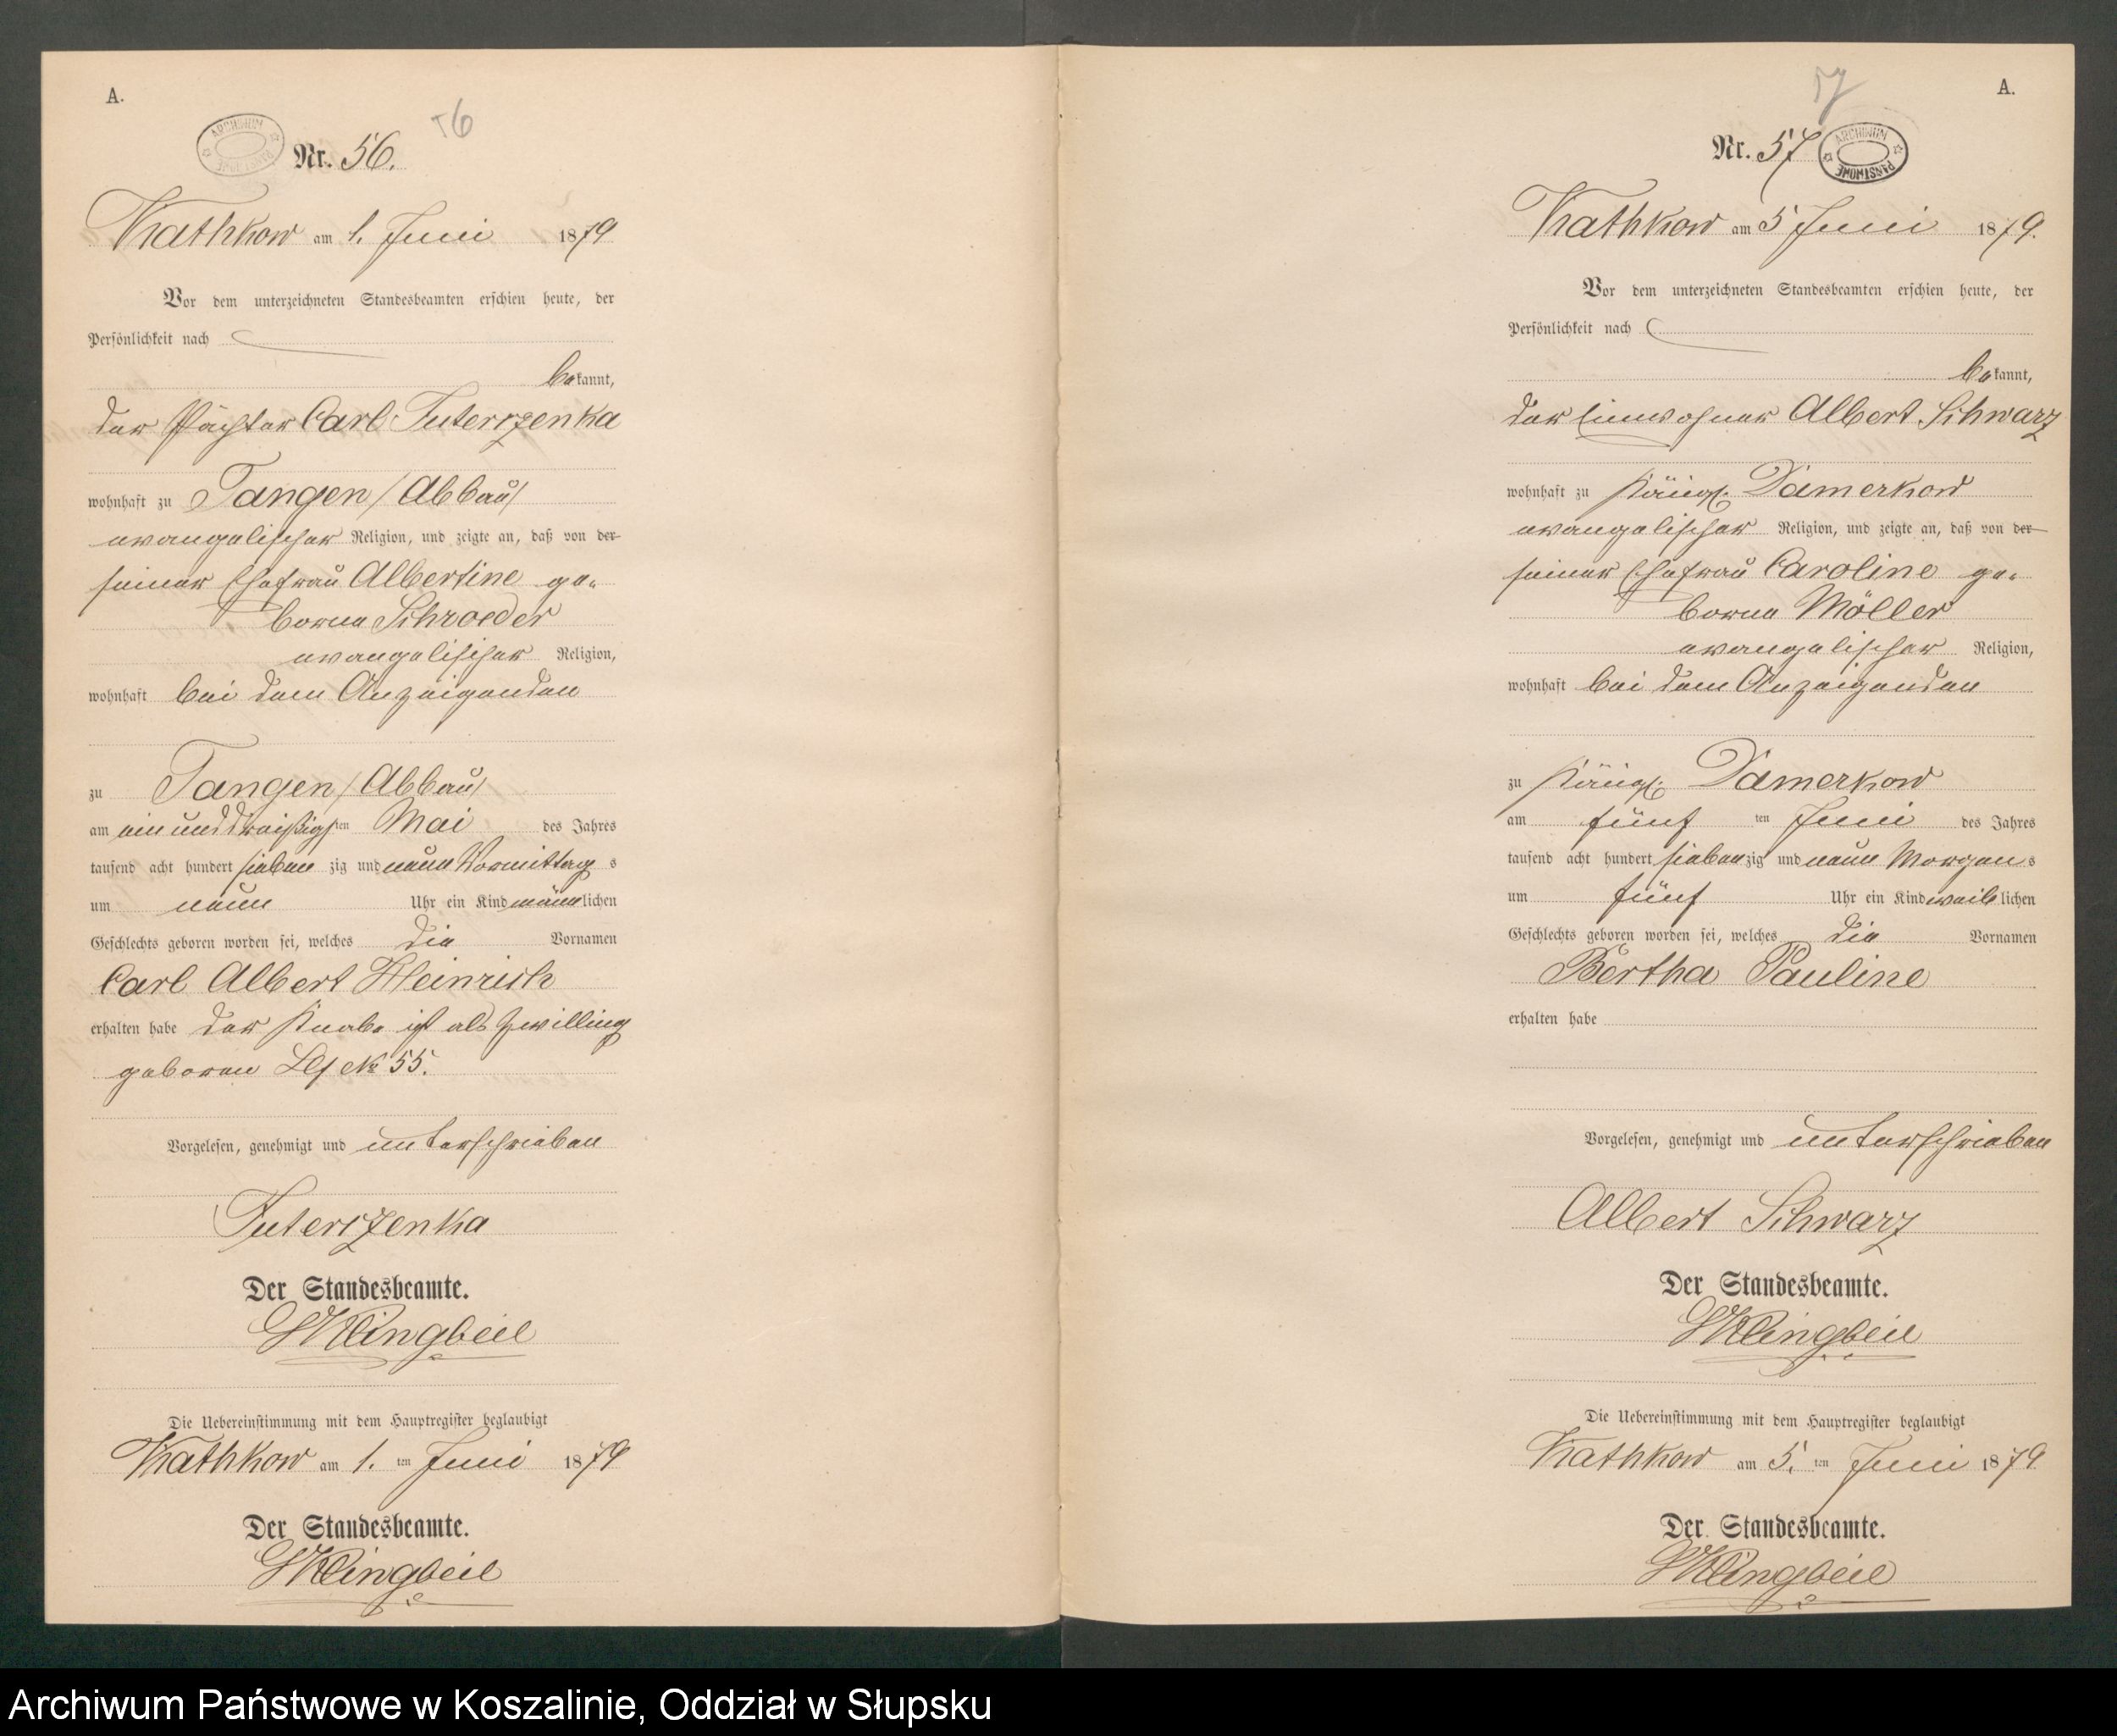 A.
56
ARCHIWUM PAŃSTWOWE
Nr. 56.
Kathkow am 1. Juni 1879
Vor dem unterzeichneten Standesbeamten erschien heute, der
Persönlichkeit nach
bekannt,
der Pächter Carl Puterczenka
wohnhaft zu Tangen /Abbau/
evangelischer Religion, und zeigte an, daß von der
seiner Ehefrau Albertine ge-
borne Schroeder
evangelischer Religion,
wohnhaft bei dem Anzeigenden
zu Tangen /Abbau/
am ein und dreißigsten Mai des Jahres
tausend acht hundert sieben zig und neun Vormittags
um neun Uhr ein Kind männlichen
Geschlechts geboren worden sei, welches die Vornamen
Carl Albert Heinrich
erhalten habe der Knabe ist als Zwilling
geboren № 55.
Vorgelesen, genehmigt und unterschrieben
Puterczenka
Der Standesbeamte.
Klingbeil
Die Uebereinstimmung mit dem Hauptregister beglaubigt
Kathkow am 1. ten Juni 1879
Der Standesbeamte.
Klingbeil
57
A.
Nr. 57
ARCHIWUM PAŃSTWOWE
Kathkow am 5 Juni 1879.
Vor dem unterzeichneten Standesbeamten erschien heute, der
Persönlichkeit nach
bekannt,
der Einwohner Albert Schwarz
wohnhaft zu Königl. Damerkow
evangelischer Religion, und zeigte an, daß von der
seiner Ehefrau Caroline ge-
borne Möller
evangelischer Religion,
wohnhaft bei dem Anzeigenden
zu Königl. Damerkow
am fünf ten Juni des Jahres
tausend acht hundert siebenzig und neun Morgens
um fünf Uhr ein Kind weiblichen
Geschlechts geboren worden sei, welches die Vornamen
Bertha Pauline
erhalten habe
Vorgelesen, genehmigt und unterschrieben
Albert Schwarz
Der Standesbeamte.
Klingbeil
Die Uebereinstimmung mit dem Hauptregister beglaubigt
Kathkow am 5. ten Juni 1879
Der Standesbeamte.
Klingbeil
Archiwum Państwowe w Koszalinie, Oddział w Słupsku